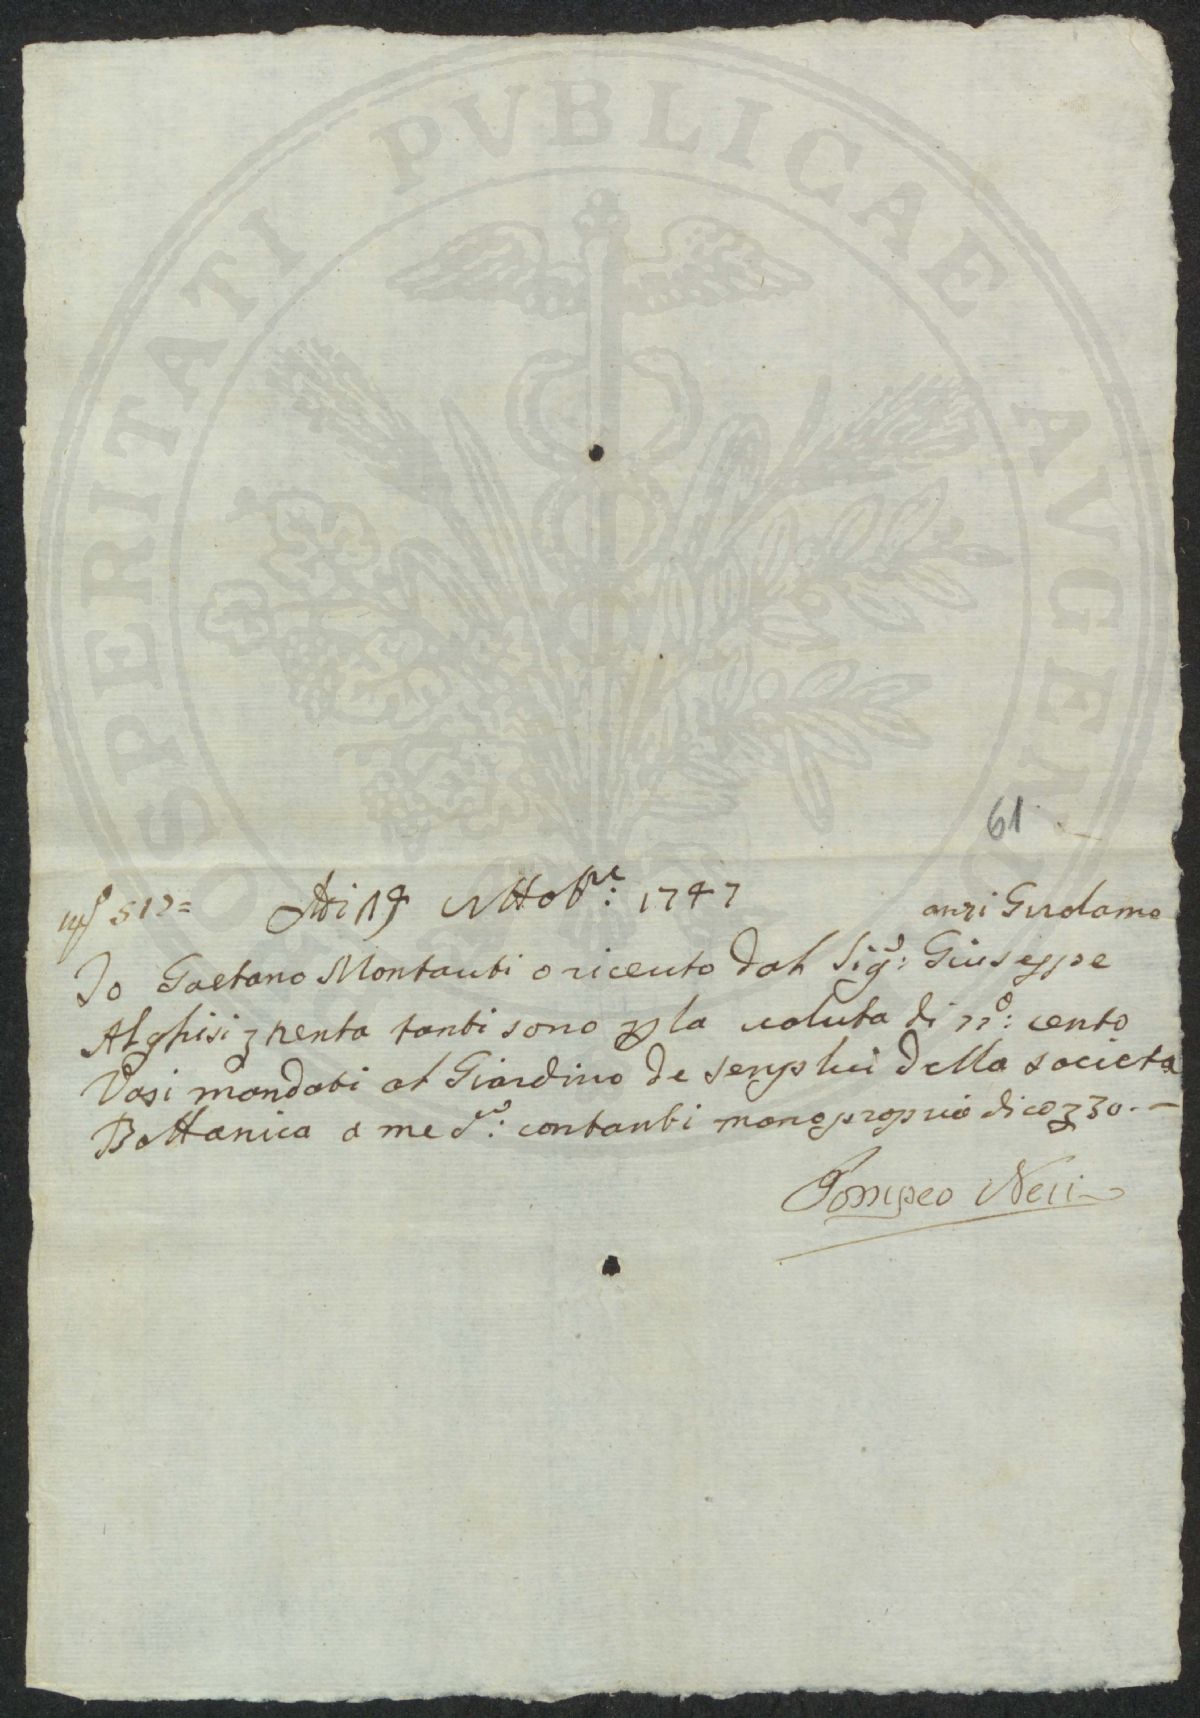 PROSPERITATI PUBLICAE AUGENDAE
61
513 = Adi 19 Ottobre: 1747 anzi Girolamo
Io Gaetano Montauti o riceuto dal Sig.: Giuseppe
Alghisi z trenta tanti sono p la ualuta di n.o: cento
Vasi mandati al Giardino de senplici della societa
Bottanica a me d.o: contanti mano propria dico z 30. —
Pompeo Neri